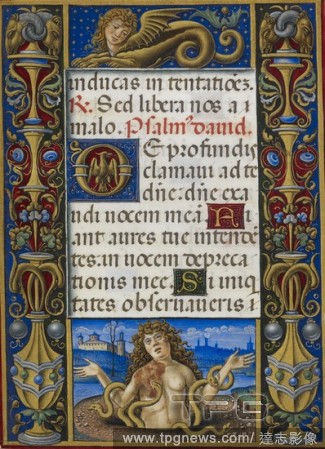 inducas in tentatiões.
R. Sed libera nos a i
malo. Psalm⁹ dauid.
DE profundis
clamaui ad te
dñe: dñe exa
udi uocem meā A
ant aures tue intendē
tes: in uocem depreca
tionis mee: Si iniq
tates obseruaueris i
TPG
www.tpgnews.com/ 達志影像